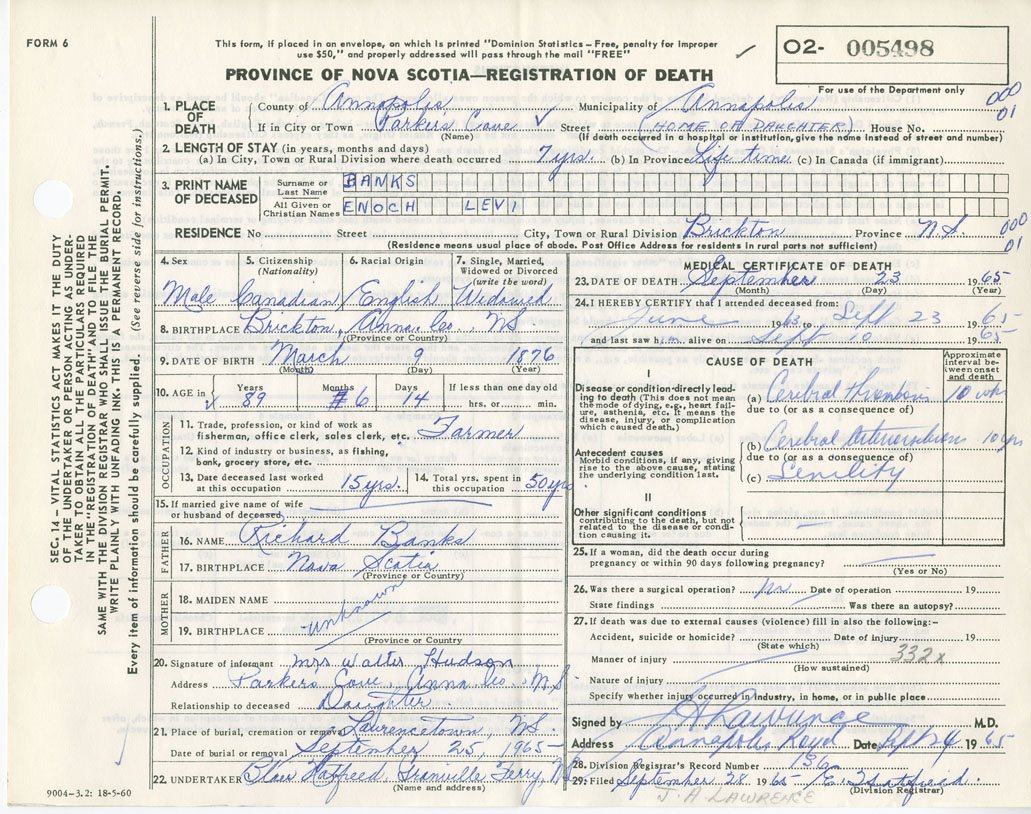 FORM 6
This form, if placed in an envelope, on which is printed "Dominion Statistics – Free, penalty for improper
use $50," and properly addressed will pass through the mail "FREE"
O2- 005498
PROVINCE OF NOVA SCOTIA—REGISTRATION OF DEATH
For use of the Department only
000
01
1. PLACE OF DEATH
County of Annapolis Municipality of Annapolis
If in City or Town Parker's Cove Street (HOME OF DAUGHTER) House No.
(Name) (If death occurred in a hospital or institution, give the name instead of street and number)
2. LENGTH OF STAY (in years, months and days)
(a) In City, Town or Rural Division where death occurred 7 yrs. (b) In Province Life time (c) In Canada (if immigrant)
3. PRINT NAME OF DECEASED
Surname or Last Name BANKS
All Given or Christian Names ENOCH LEVI
000
01
RESIDENCE No Street City, Town or Rural Division Brickton Province N.S.
(Residence means usual place of abode. Post Office Address for residents in rural parts not sufficient)
4. Sex 5. Citizenship (Nationality) 6. Racial Origin 7. Single, Married, Widowed or Divorced (write the word)
Male Canadian English Widowed
8. BIRTHPLACE Brickton, Anna. Co., NS
(Province or Country)
9. DATE OF BIRTH March 9 1876
(Month) (Day) (Year)
10. AGE in Years 89 Months 6 Days 14 If less than one day old hrs. or min.
OCCUPATION
11. Trade, profession or kind of work as
fisherman, office clerk, sales clerk, etc. Farmer
12. Kind of industry or business, as fishing,
bank, grocery store, etc.
13. Date deceased last worked at this occupation 15 yrs. 14. Total yrs. spent in this occupation 50 yrs
15. If married give name of wife
or husband of deceased
FATHER
16. NAME Richard Banks
17. BIRTHPLACE Nova Scotia
(Province or Country)
MOTHER
18. MAIDEN NAME
unknown
19. BIRTHPLACE
(Province or Country)
20. Signature of informant Mrs Walter Hudson
Address Parker's Cove, Anna Co., N.S.
Relationship to deceased Daughter
21. Place of burial, cremation or removal Lawrencetown, NS.
Date of burial or removal September 25, 1965
22. UNDERTAKER Hatfield, Granville Ferry, NS
(Name and address)
9004–3.2: 18-5-60
MEDICAL CERTIFICATE OF DEATH
23. DATE OF DEATH September 23 1965
(Month) (Day) (Year)
24. I HEREBY CERTIFY that I attended deceased from:
June 1963 to Sept 23 1965
and last saw him alive on Sept 10 1965
CAUSE OF DEATH
Approximate interval between onset and death
I
Disease or condition directly leading to death (This does not mean the mode of dying, e.g., heart failure, asthenia, etc. It means the disease, injury, or complication which caused death.)
(a) Cerebral thrombosis 10 wks
due to (or as a consequence of)
(b) Cerebral Arteriosclerosis 10 yrs
due to (or as a consequence of)
Antecedent causes
Morbid conditions, if any, giving rise to the above cause, stating the underlying condition last.
(c) Senility
II
Other significant conditions
contributing to the death, but not related to the disease or condition causing it.
25. If a woman, did the death occur during
pregnancy or within 90 days following pregnancy?
(Yes or No)
26. Was there a surgical operation? no Date of operation 19
State findings Was there an autopsy?
27. If death was due to external causes (violence) fill in also the following:–
Accident, suicide or homicide? Date of injury 19
(State which)
Manner of injury 332x
(How sustained)
Nature of injury
Specify whether injury occurred in industry, in home, or in public place
Signed by J A Lawrence M.D.
Address Annapolis Royal Date Sept 24 1965
28. Division Registrar's Record Number 136
29. Filed September 28 1965 E. Hatfield
(Division Registrar)
J. A LAWRENCE
SEC. 14 – VITAL STATISTICS ACT MAKES IT THE DUTY
OF THE UNDERTAKER OR PERSON ACTING AS UNDER-
TAKER TO OBTAIN ALL THE PARTICULARS REQUIRED
IN THE "REGISTRATION OF DEATH" AND TO FILE THE
SAME WITH THE DIVISION REGISTRAR WHO SHALL ISSUE THE BURIAL PERMIT.
WRITE PLAINLY WITH UNFADING INK. THIS IS A PERMANENT RECORD.
Every item of information should be carefully supplied. (See reverse side for instructions.)